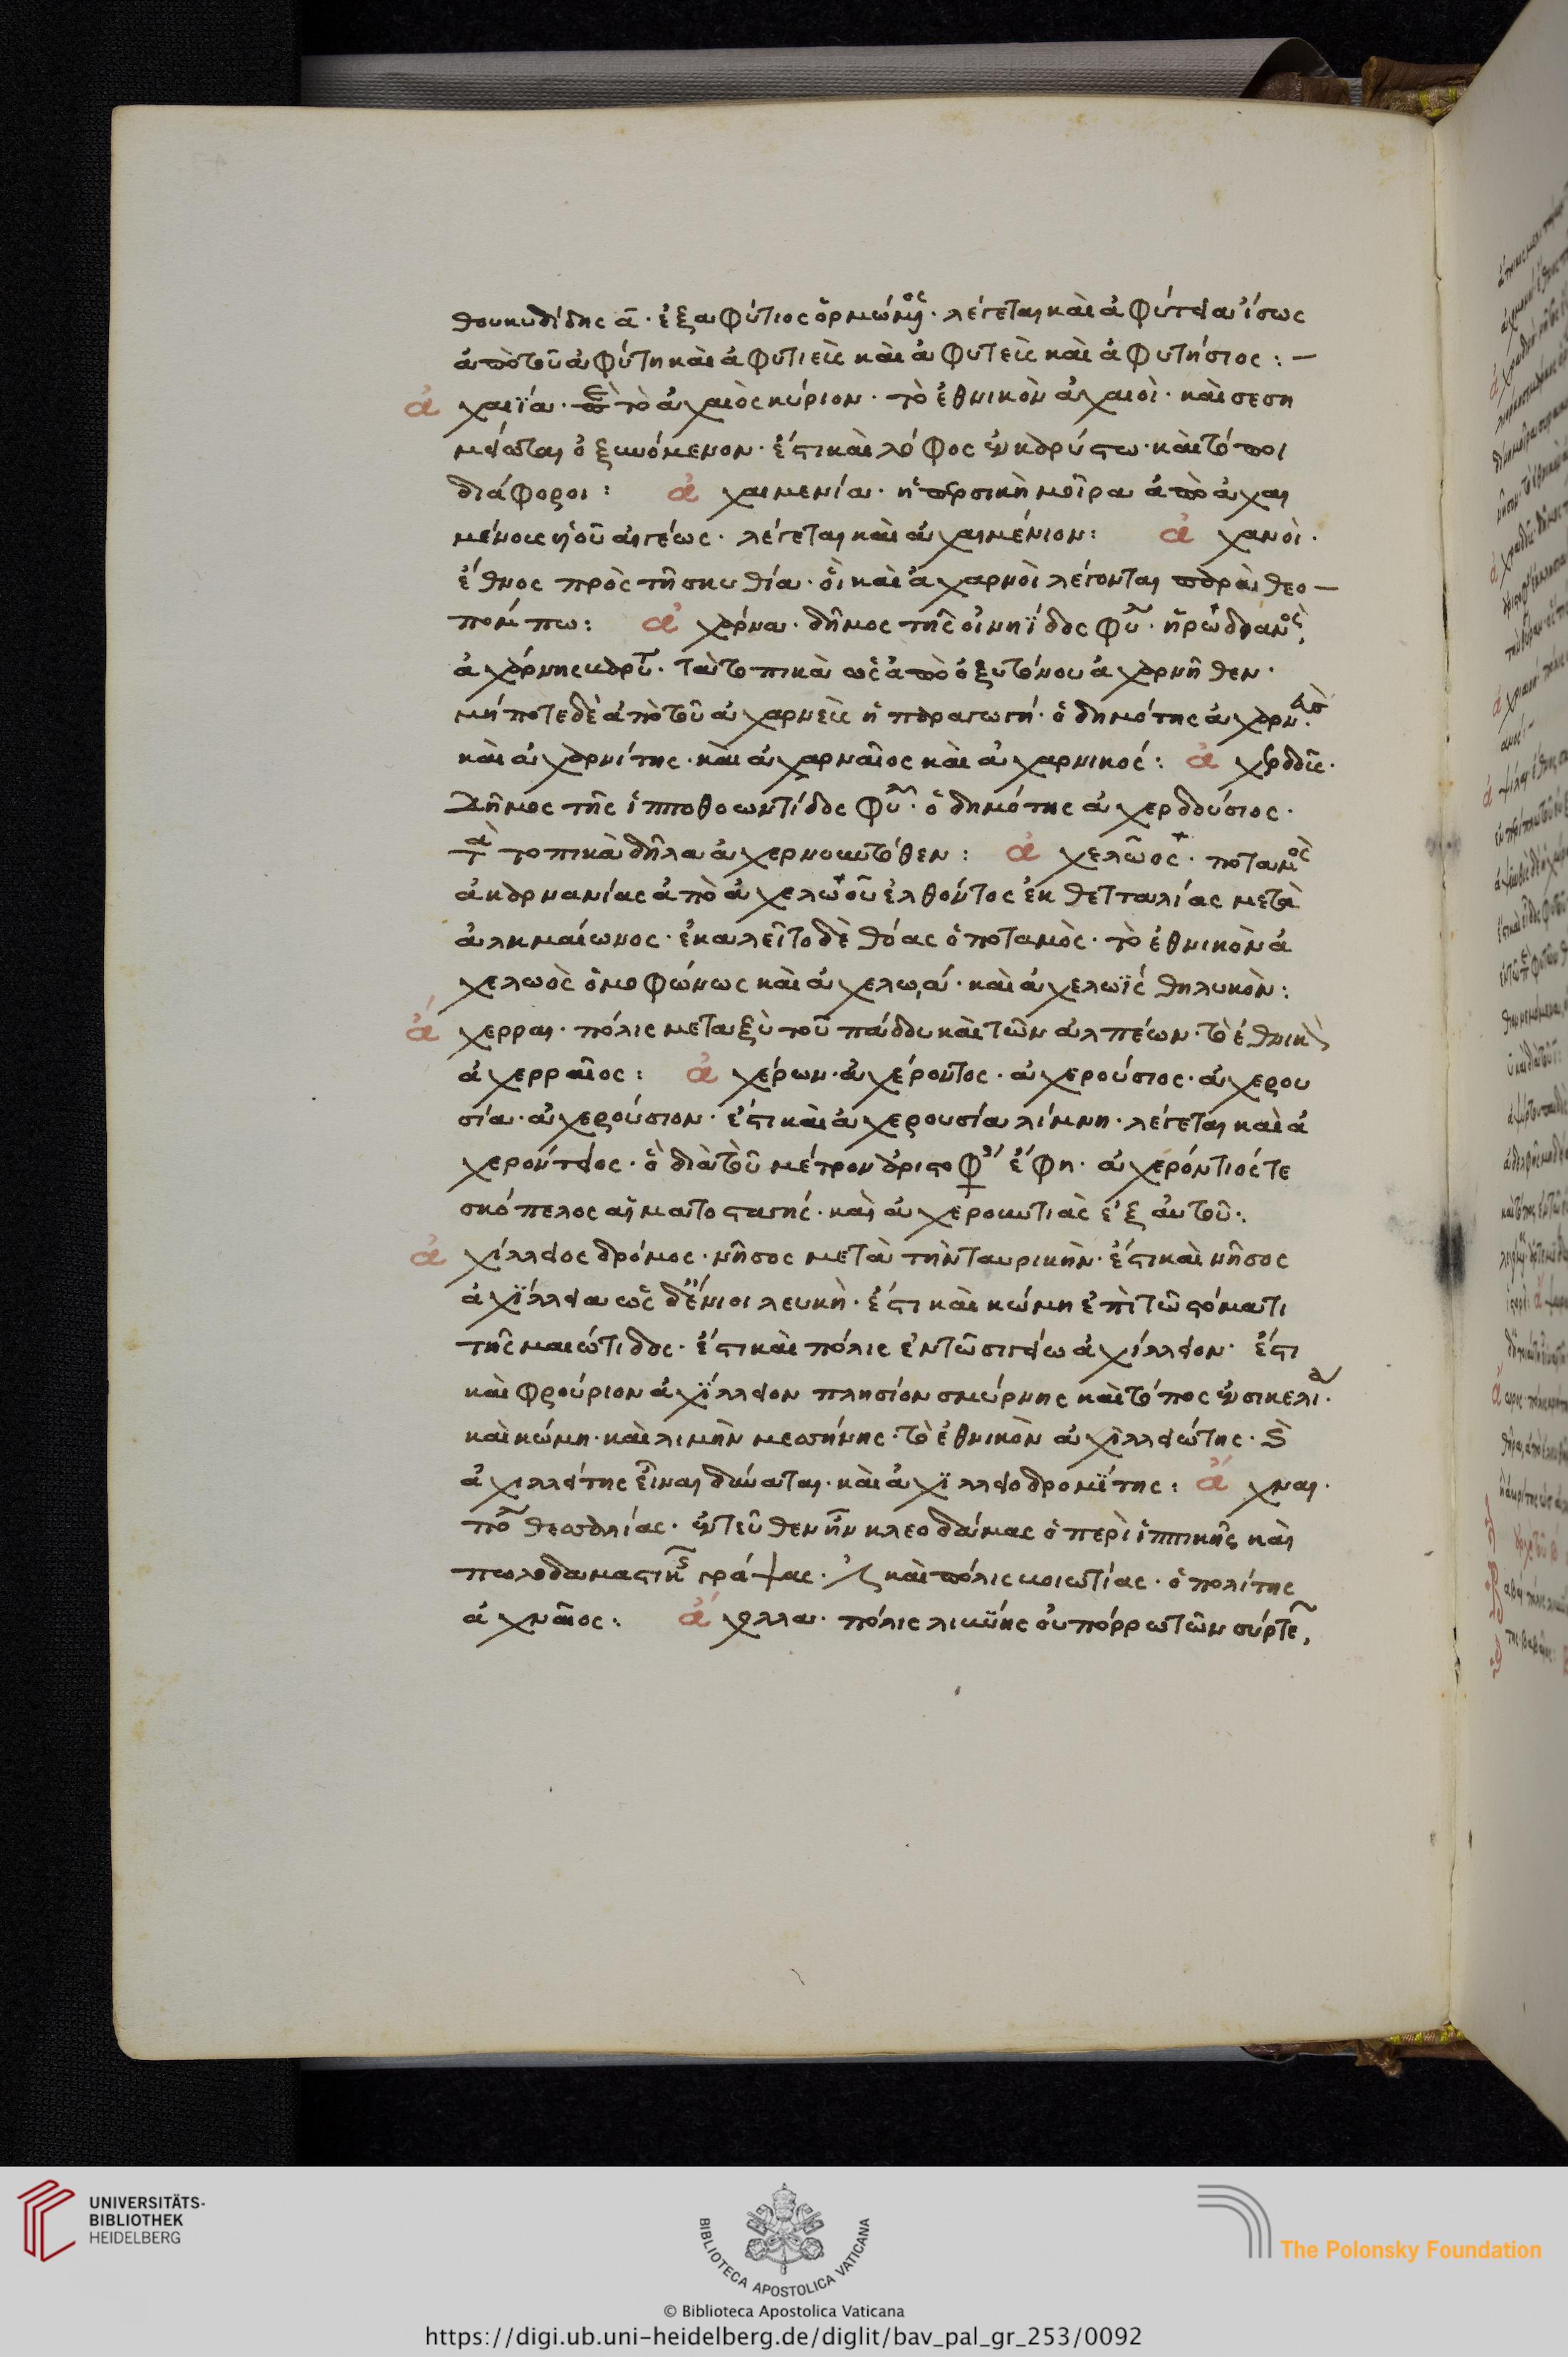 θουκυδίδης α. ἐξ ἀφύτιος ὁρμώμενος. λέγεται καὶ ἀφύτεια ἴσως
ἀπὸ τοῦ ἀφύτη καὶ ἀφυτιεὺς καὶ ἀφυτεὺς καὶ ἀφυτήσιος :—
ἀχαιΐα. τὸ ἀχαιὸς κύριον. τὸ ἐθνικὸν ἀχαιοὶ. καὶ σεση
μείωται ὀξυνόμενον. ἔστι καὶ λόφος ἐν καρύστω. καὶ τόποι
διάφοροι : ἀχαιμενία. ἡ περσικὴ μοῖρα ἀπὸ ἀχαι
μένους υἱοῦ αἰγέως. λέγεται καὶ ἀχαιμένιον : ἀχανοὶ.
ἔθνος πρὸς τῆ σκυθία. οἱ καὶ ἀχαρνοὶ λέγονται παρὰ θεο—
πόμπω : ἀχάρνα. δῆμος τῆς οἰνηΐδος φυ. ἡρωδιανὸς
ἀχάρνης. τὰ τοπικὰ ὡς ἀπὸ ὀξυτόνου ἀχαρνῆθεν.
μήποτε δὲ ἀπὸ τοῦ ἀχαρνεὺς ἡ παραγωγή. ὁ δημότης ἀχαρν
καὶ ἀχαρνίτης. καὶ ἀχαρναῖος καὶ ἀχαρνικός : ἀχερδοῦς.
Δῆμος τῆς ἱπποθοωντίδος φυ. ὁ δημότης ἀχερδούσιος.
τὰ τοπικὰ δῆλα ἀχερνουντόθεν : ἀχελῶος. ποταμὸς
ἀκαρνανίας ἀπὸ ἀχελώου ἐλθόντος ἐκ θετταλίας μετὰ
ἀλκμαίωνος. ἐκαλεῖτο δὲ θόας ὁ ποταμὸς. τὸ ἐθνικὸν ἀ
χελωὸς ὁμοφώνως καὶ ἀχελωά. καὶ ἀχελωϊς θηλυκὸν :
ἀχερραι. πόλις μεταξὺ τοῦ πάδου καὶ τῶν ἀλπέων. τὸ ἐθνικὸν
ἀχερραῖος : ἀχέρων. ἀχέροντος. ἀχερούσιος. ἀχερου
σία. ἀχερούσιον. ἔστι καὶ ἀχερουσία λίμνη. λέγεται καὶ ἀ
χερόντειος. ὃ διὰ τοῦ μέτρον ἀριστοφ ἔφη. ἀχερόντιός τε
σκόπελος αἱματοσταγής. καὶ ἀχερουντιὰς ἐξ αὐτοῦ :.
ἀχίλλειος δρόμος. νῆσος μετὰ τὴν ταυρικὴν. ἔστι καὶ νῆσος
ἀχΐλλεια ὡς δ' ἔνιοι λευκὴ. ἔστι καὶ κώμη ἐπὶ τῶ στόματι
τῆς μαιώτιδος. ἔστι καὶ πόλις ἐν τῶ σιγείω ἀχίλλειον. ἔστι
καὶ φρούριον ἀχΐλλειον πλησίον σμύρνης καὶ τόπος ἐν σικελία.
καὶ κώμη. καὶ λιμὴν μεσσήνης. τὸ ἐθνικὸν ἀχιλλειώτης. καὶ
ἀχιλλείτης εἶναι δύναται. καὶ ἀχϊλλειοδρομΐτης : ἄχναι.
πό θεσσαλίας. ἐντεῦθεν ἦν κλεοδάμας ὁ περὶ ἱππικῆς καὶ
πωλοδαμαστικῆς γράψας. καὶ πόλις βοιωτίας. ὁ πολίτης
ἀχναῖος : ἄχολλα. πόλις λιβύης οὐ πόρρω τῶν σύρτε,
UNIVERSITÄTS-
BIBLIOTHEK
HEIDELBERG
BIBLIOTECA APOSTOLICA VATICANA
The Polonsky Foundation
© Biblioteca Apostolica Vaticana
https://digi.ub.uni-heidelberg.de/diglit/bav_pal_gr_253/0092